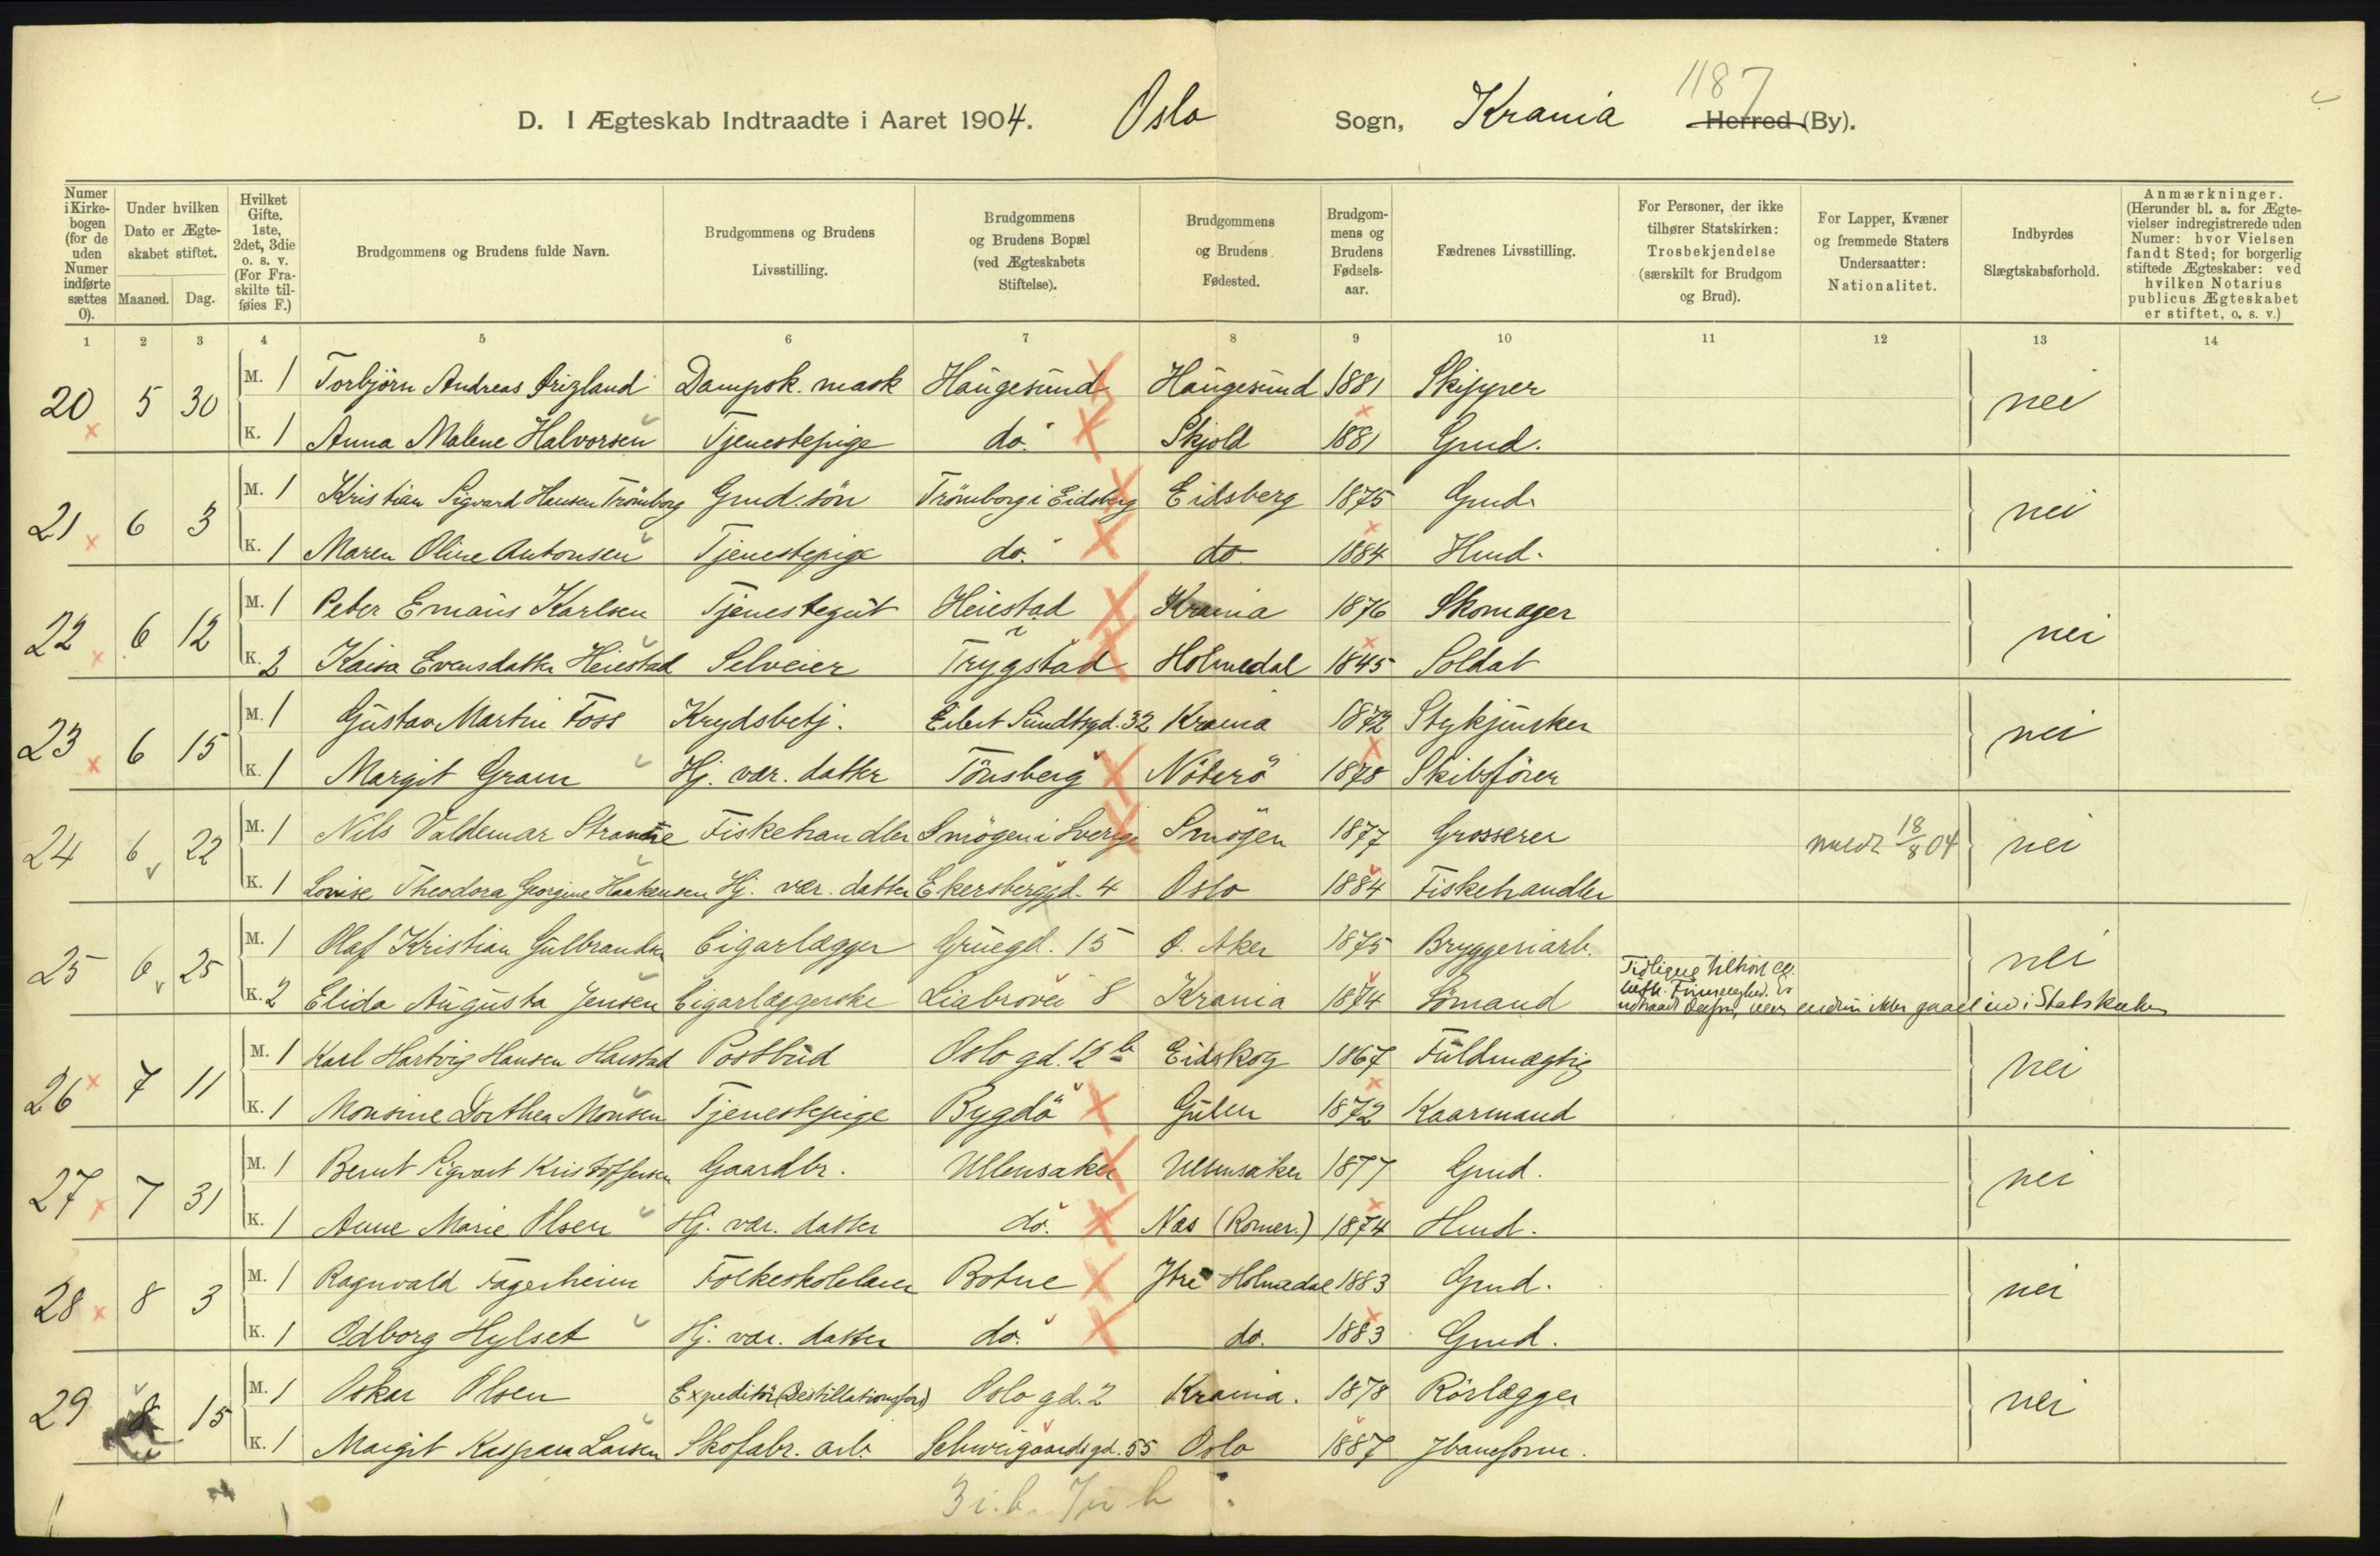 1187
D. I Ægteskab Indtraadte i Aaret 1904. Oslo Sogn, Krania Herred (By).
Numer i Kirkebogen (for de uden Numer indførte sættes 0). Under hvilken Dato er Ægteskabet stiftet. Maaned. Dag. Hvilket Gifte. 1ste, 2det, 3die o. s. v. (For Fraskilte tilføies F.) Brudgommens og Brudens fulde Navn. Brudgommens og Brudens Livsstilling. Brudgommens og Brudens Bopæl (ved Ægteskabets Stiftelse). Brudgommens og Brudens Fødested. Brudgommens og Brudens Fødselsaar. Fædrenes Livsstilling. For Personer, der ikke tilhører Statskirken: Trosbekjendelse (særskilt for Brudgom og Brud). For Lapper, Kvæner og fremmede Staters Undersaatter: Nationalitet. Indbyrdes Slægtskabsforhold. Anmærkninger. (Herunder bl. a. for Ægtevielser indregistrerede uden Numer: hvor Vielsen fandt Sted; for borgerlig stiftede Ægteskaber: ved hvilken Notarius publicus Ægteskabet er stiftet, o. s. v.)
1 2 3 4 5 6 7 8 9 10 11 12 13 14
20 5 30 M. 1 Torbjörn Andreas Dampsk. mask Haugesund Haugesund 1881 Skipper nei
K. 1 Anna Malene Halvorsen Tjenestepige do. Skjold 1881 Gmd.
21 6 3 M. 1 Kristian Sigvard Hansen Trömborg Gmd. sön Trömborg i Eidsberg Eidsberg 1875 Gmd. nei
K. 1 Maren Oline Antonsen Tjenestepige do. do 1884 Hmd.
22 6 12 M. 1 Peter Emaus Karlsen Tjenestegut Heiestad i Krania 1876 Skomager nei
K. 2 Kaisa Evensdatter Heiestad Selveier Trygstad Holmedal 1845 Soldat
23 6 15 M. 1 Gustav Martin Foss Krydsbetj. Eilert Sundtsgd. 32 Krania 1872 Stykjunker nei
K. 1 Margit Gram Hj. vær. datter Tönsberg Nöterö 1878 Skibsförer
24 6 22 M. 1 Nils Valdemar Fiskehandler Smögen i Sverige Smögen 1877 Grosserer 18/8 04 nei
K. 1 Lovise Theodora Georgine Haakensen Hj. vær. datter Ekersberggd. 4 Oslo 1884 Fiskehandler
25 6 25 M. 1 Olaf Kristian Gulbrandsen Cigarlægger Gruegd. 15 Ø. Aker 1875 Bryggeriarb. nei
K. 2 Elida Augusta Jensen Cigarlæggerske Liabroveien 8 Krania 1874 Sömand Tidligere tilhört
luth. Frimenighed. Er
udtraadt derfra, men endnu ikke gaaet ind i Statskirken
26 7 11 M. 1 Karl Hartvig Hansen Postbud Oslo gd. 12 b Eidskog 1867 Fuldmægtig nei
K. 1 Monsine Dorthea Monsen Tjenestepige Bygdö Gulen 1872 Kaarmand
27 7 31 M. 1 Bernt Sigvart Kristoffersen Gaardbr. Ullensaker Ullensaker 1877 Gmd. nei
K. 1 Anne Marie Olsen Hj. vær. datter do. Næs (Romer.) 1874 Hmd.
28 8 3 M. 1 Ragnvald Fagerheim Folkeskolelærer Botne Ytre Holmedal 1883 Gmd. nei
K. 1 Odborg Hylset Hj. vær. datter do. do. 1883 Gmd.
29 8 15 M. 1 Oskar Olsen Expeditör Oslo gd. 2 Krania. 1878 Rörlægger nei
K. 1 Margit Kaspara Larsen Skofabr. arb. Schweigaardsgd. 55 Oslo 1887 Jbaneform.
3 i. b.